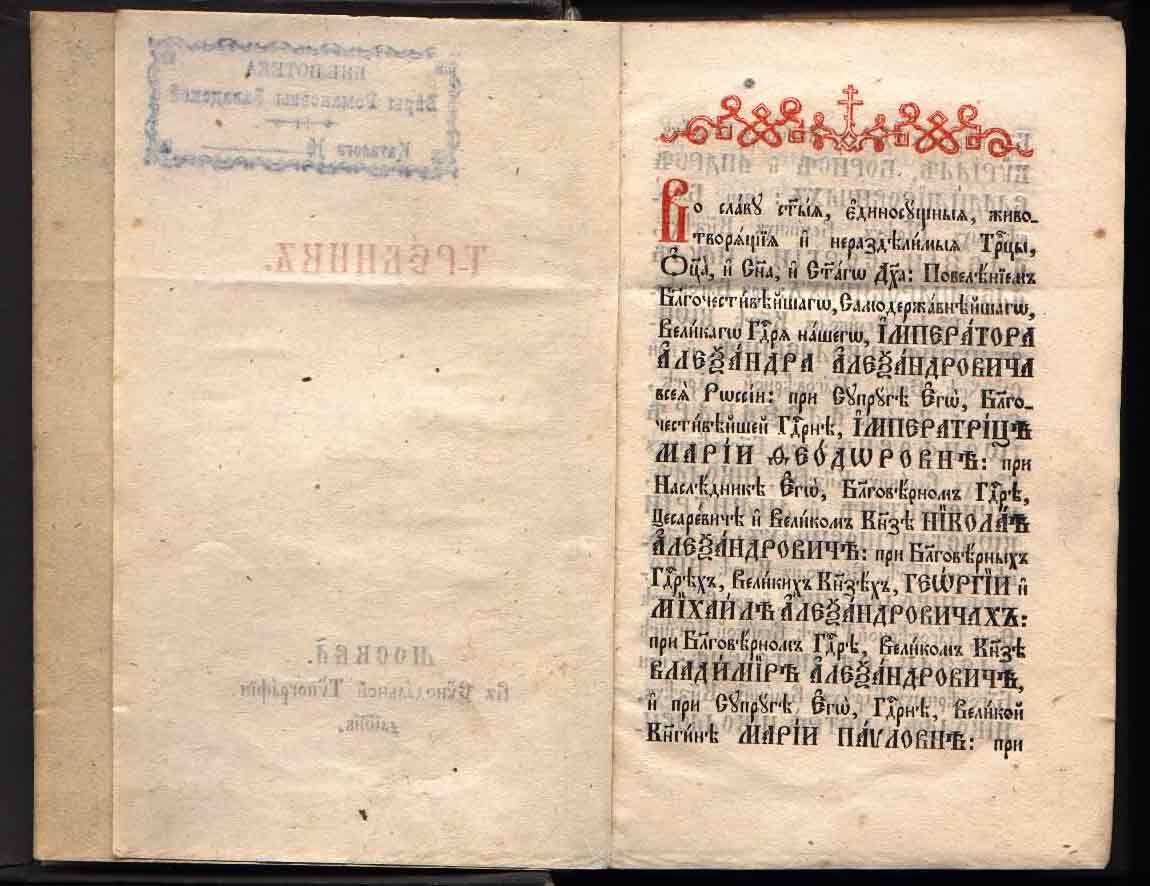 БИБЛІОТЕКА
Вѣры Романовны
Каталога №
ТРЕ́БНИКЪ.
МОСКВА̀.
Въ Сѷнода́льной Тѷпогра́фїи
Во сла́ву ст҃ы́ѧ, є҆диносꙋ́щныѧ, живо-
творѧ́щїѧ и҆ нераздѣ́лимыѧ Трⷪ҇цы,
Ѻ҆ц҃а̀, и҆ Сн҃а, и҆ Ст҃а́гѡ Дх҃а: Повелѣ́нїемъ
Бл҃гочести́вѣйшагѡ, Самодержа́внѣйшагѡ,
Вели́кагѡ Гдⷭ҇рѧ на́шегѡ, І҆МПЕРА́ТОРА
А҆ЛЕѮА́НДРА А҆ЛЕѮА́НДРОВИЧА
всеѧ̀ Рѡссі́и: при Сꙋпрꙋ́гѣ Є҆гѡ̀, Бл҃го-
чести́вѣйшей Гдⷭ҇рнѣ, І҆МПЕРАТРІ́ЦѢ
МАРІ́И ѲЕО́ДѠРОВНѢ: при
Наслѣ́дникѣ Є҆гѡ̀, Бл҃говѣ́рномъ Гдⷭ҇рѣ,
Цесаре́вичѣ и҆ Вели́комъ Кн҃зѣ НІКОЛА́Ѣ
А҆ЛЕѮА́НДРОВИЧѢ: при Бл҃говѣ́рныхъ
Гдⷭ҇рѣхъ, Вели́кихъ Кн҃зѣхъ, ГЕѠ́РГІИ и҆
МІХАИ́ЛѢ А҆ЛЕѮА́НДРОВИЧАХЪ:
при Бл҃говѣ́рномъ Гдⷭ҇рѣ, Вели́комъ Кн҃зѣ
ВЛАДИ́МІРѢ А҆ЛЕѮА́НДРОВИЧѢ,
и҆ при Сꙋпрꙋ́гѣ Є҆гѡ̀, Гдⷭ҇рнѣ, Вели́кой
Кн҃ги́нѣ МАРІ́И ПА́ѴЛОВНѢ: при